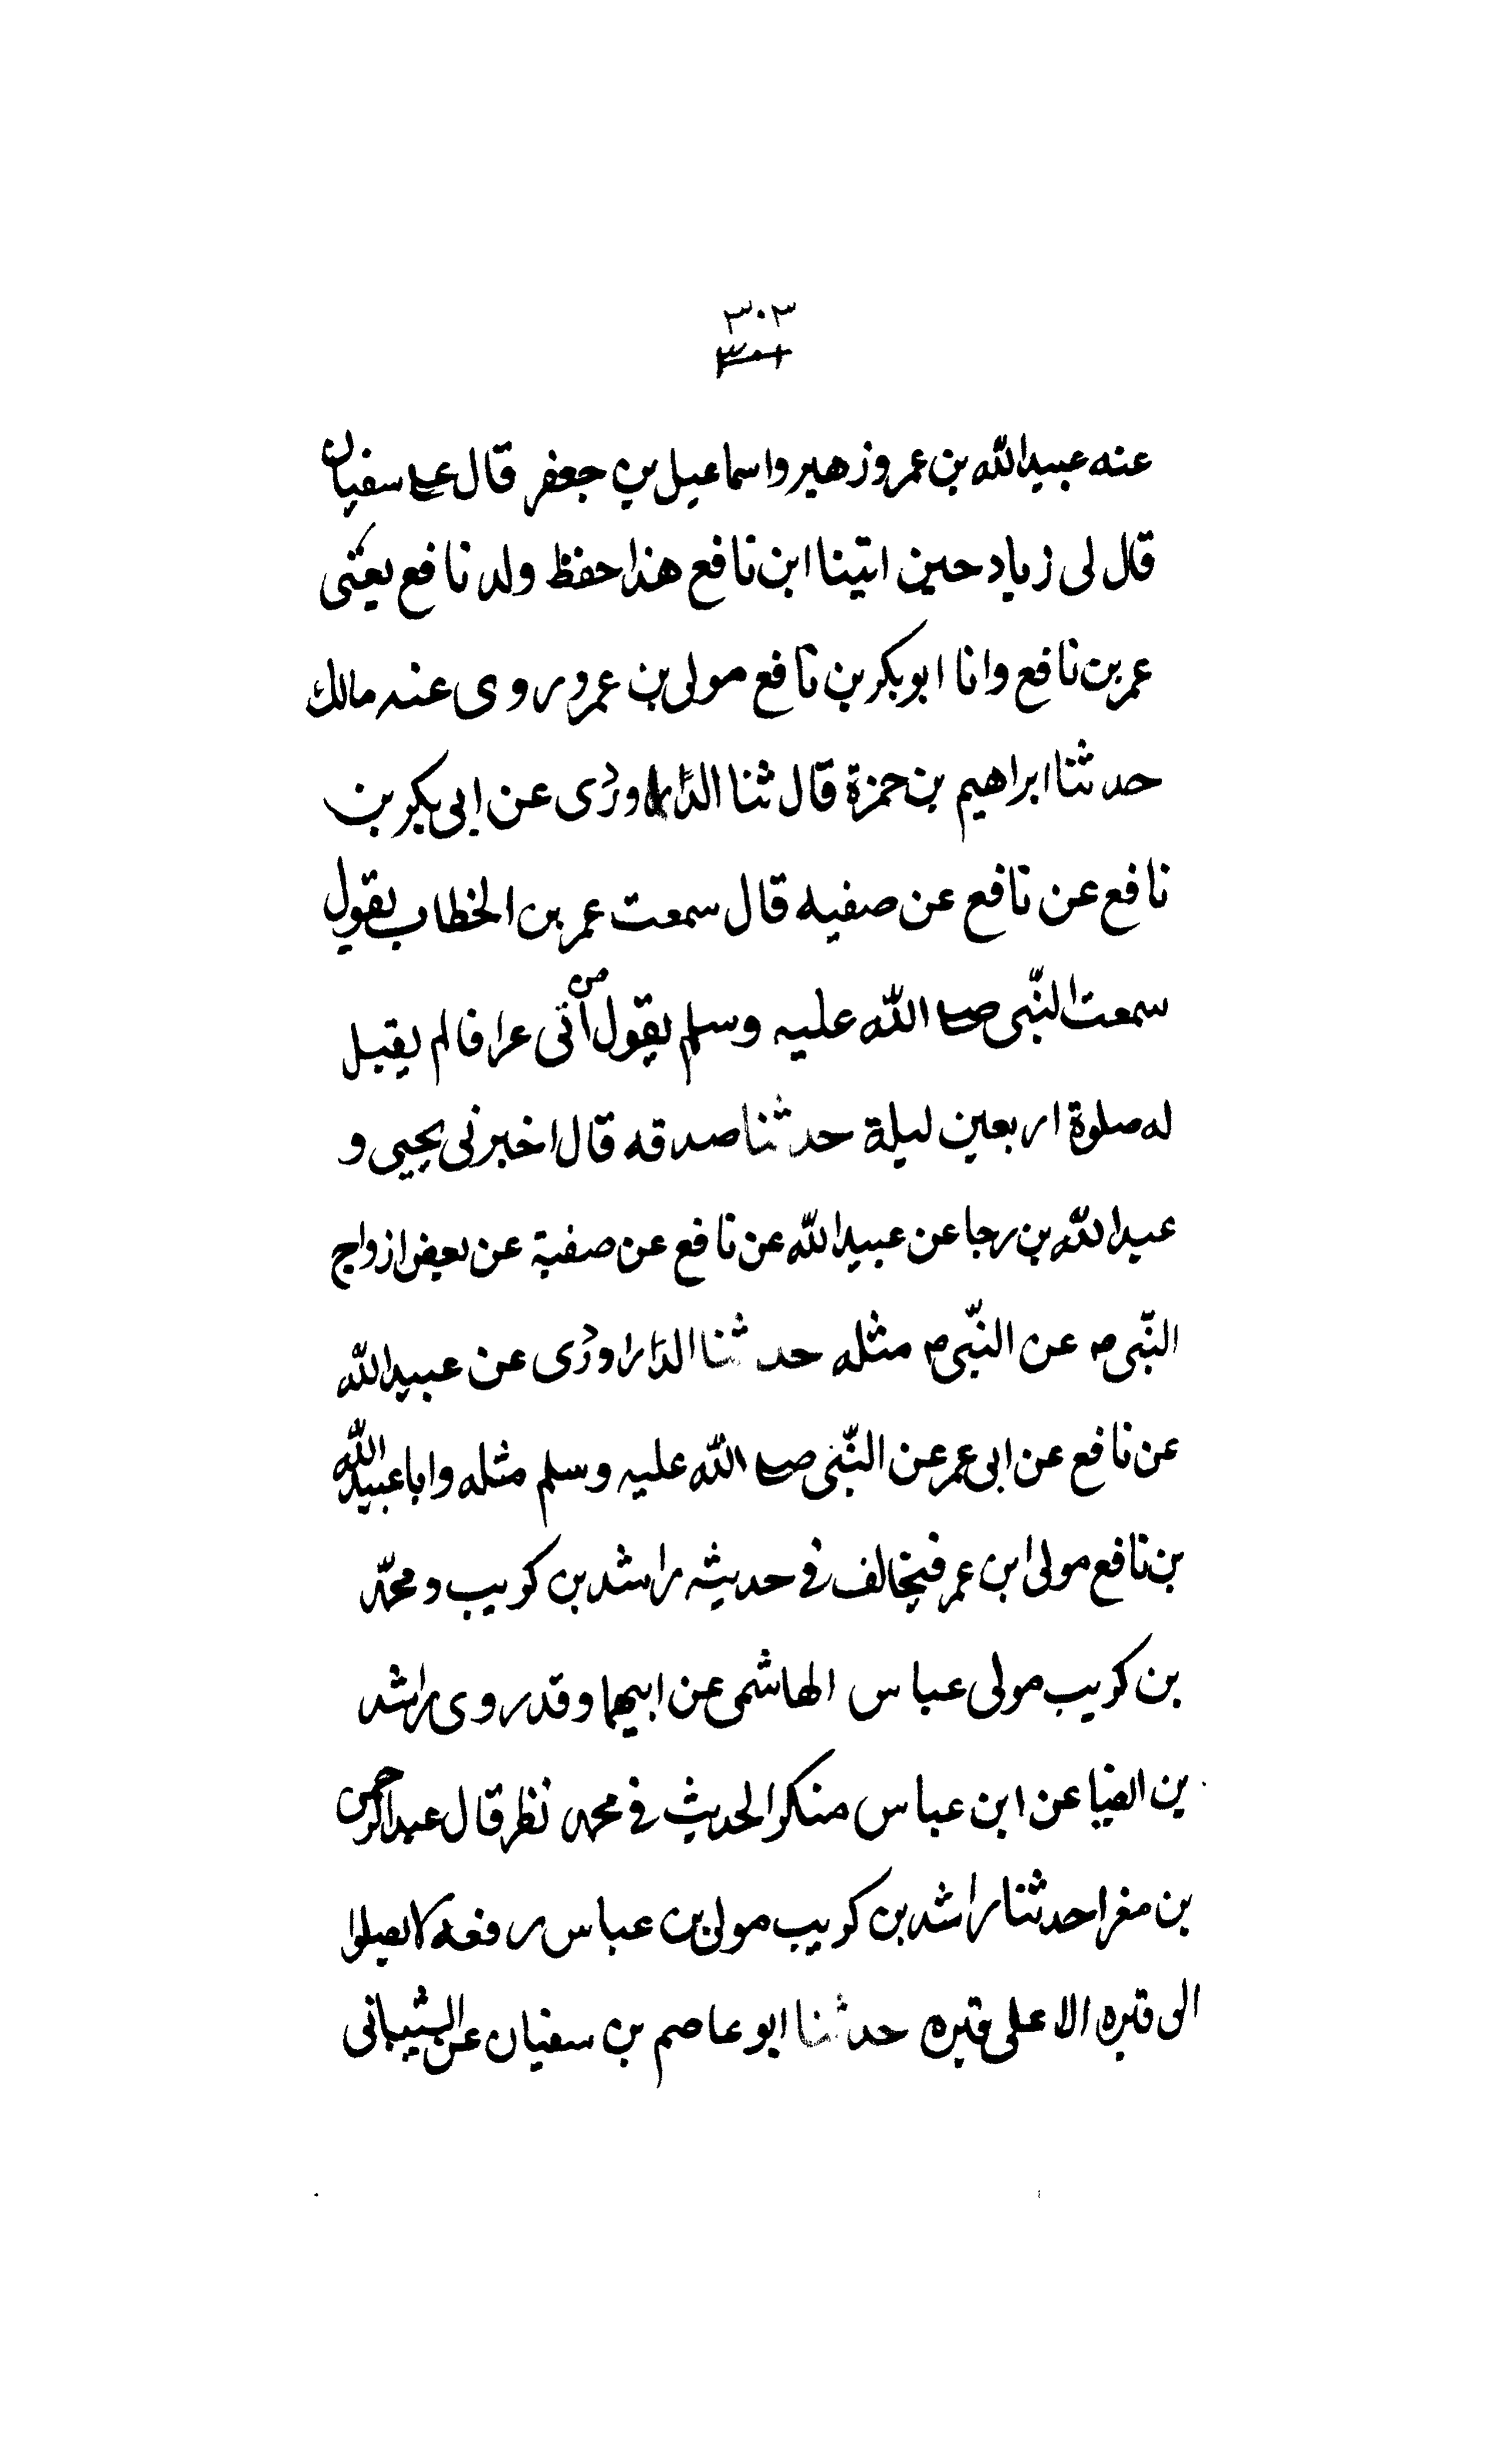 ٣٠٣
٣٠١
عنه عبيد الله بن عمرو زهير واسماعيل بن جعفر قال علي سفيان
قال لى زياد حين اتينا ابن نافع هذا حفظ ولد نافع يعنى
عمر بن نافع وانا ابو بكر بن نافع مولى بن عمر وروى عنه مالك
حدثنا ابراهيم بن حمزة قال ثنا الدراوردى عن ابى بكر بن
نافع عن نافع عن صفيه قال سمعت عمر بن الخطاب يقول
سمعت النّبى صلى الله عليه وسلم يقول من أتى عرافا لم يقبل
له صلوة اربعين ليلة حدثنا صدقه قال اخبرنى يحيى و
عبد الله بن رجا عن عبيد الله عن نافع عن صفية عن بعض ازواج
النّبى ص عن النّبى ص مثله حدثنا الدراوردى عن عبيد الله
عن نافع عن ابى عمر عن النّبى صلى الله عليه وسلم مثله وابا عبيد الله
بن نافع مولى ابن عمر فيخالف فى حديثه راشد بن كريب ومحمّد
بن كريب مولى عباس الهاشمى عن ابيهما وقد روى راشد
بن ايضا عن ابن عباس منكر الحديث فى محمد نظر قال عبد الرحمن
بن مغرا حدثنا راشد بن كريب مولى بن عباس رفعه لا تصلوا
الى قبره الا على قبره حدثنا ابو عاصم بن سفيان عن الشيبانى